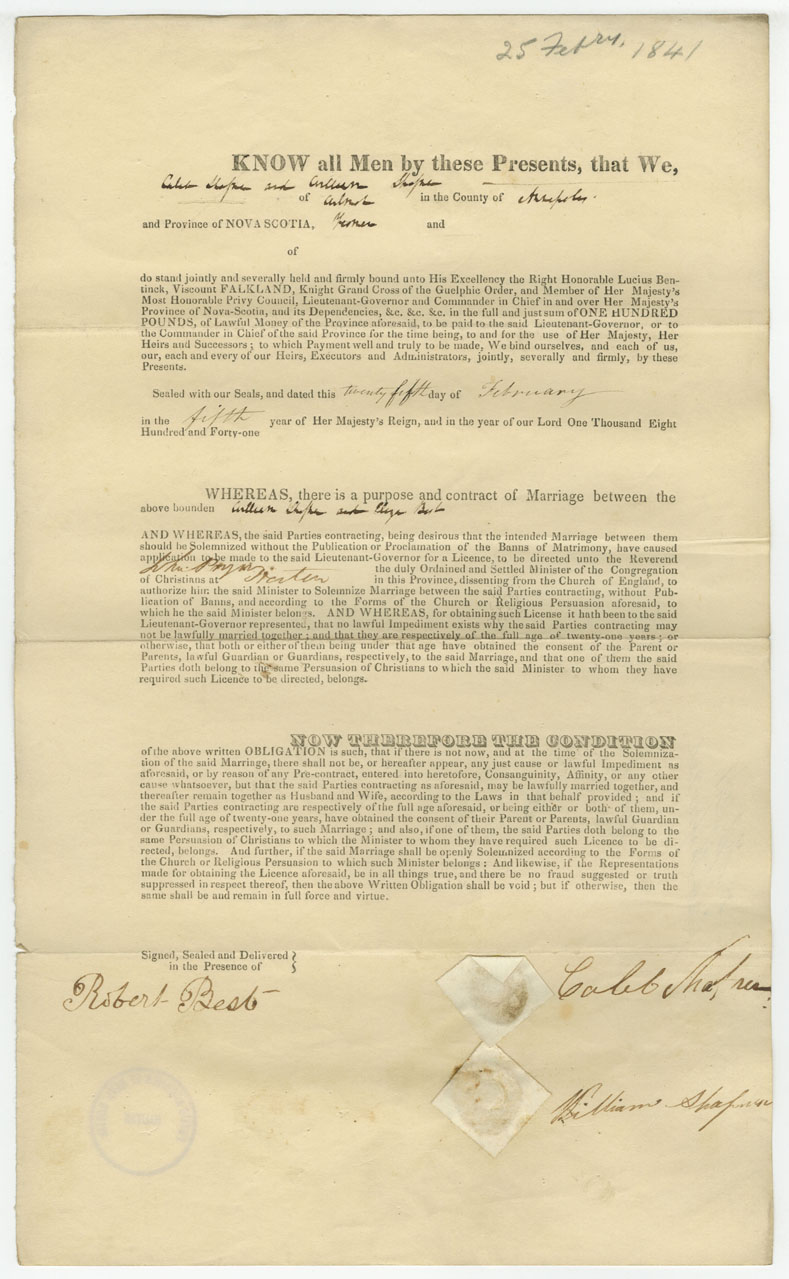 25 Febry. 1841
KNOW all Men by these Presents, that We,
Caleb and William
of in the County of Annapolis
and Province of NOVA SCOTIA, and
of
do stand jointly and severally held and firmly bound unto His Excellency the Right Honorable Lucius Ben-
tinck, Viscount FALKLAND, Knight Grand Cross of the Guelphic Order, and Member of Her Majesty's
Most Honorable Privy Council, Lieutenant-Governor and Commander in Chief in and over Her Majesty's
Province of Nova-Scotia, and its Dependencies, &c. &c. &c. in the full and just sum of ONE HUNDRED
POUNDS, of Lawful Money of the Province aforesaid, to be paid to the said Lieutenant-Governor, or to
the Commander in Chief of the said Province for the time being, to and for the use of Her Majesty, Her
Heirs and Successors; to which Payment well and truly to be made, We bind ourselves, and each of us,
our, each and every of our Heirs, Executors and Administrators, jointly, severally and firmly, by these
Presents.
Sealed with our Seals, and dated this twenty fifth day of February
in the fifth year of Her Majesty's Reign, and in the year of our Lord One Thousand Eight
Hundred and Forty-one
WHEREAS, there is a purpose and contract of Marriage between the
above bounden William and Eliza Best
AND WHEREAS, the said Parties contracting, being desirous that the intended Marriage between them
should be Solemnized without the Publication or Proclamation of the Banns of Matrimony, have caused
application to be made to the said Lieutenant-Governor for a Licence, to be directed unto the Reverend
the duly Ordained and Settled Minister of the Congregation
of Christians at in this Province, dissenting from the Church of England, to
authorize him the said Minister to Solemnize Marriage between the said Parties contracting, without Pub-
lication of Banns, and according to the Forms of the Church or Religious Persuasion aforesaid, to
which he the said Minister belongs. AND WHEREAS, for obtaining such License it hath been to the said
Lieutenant-Governor represented, that no lawful Impediment exists why the said Parties contracting may
not be lawfully married together; and that they are respectively of the full age of twenty-one years; or
otherwise, that both or either of them being under that age have obtained the consent of the Parent or
Parents, lawful Guardian or Guardians, respectively, to the said Marriage, and that one of them the said
Parties doth belong to the same Persuasion of Christians to which the said Minister to whom they have
required such Licence to be directed, belongs.
NOW THEREFORE THE CONDITION
of the above written OBLIGATION is such, that if there is not now, and at the time of the Solemniza-
tion of the said Marriage, there shall not be, or hereafter appear, any just cause or lawful Impediment as
aforesaid, or by reason of any Pre-contract, entered into heretofore, Consanguinity, Affinity, or any other
cause whatsoever, but that the said Parties contracting as aforesaid, may be lawfully married together, and
thereafter remain together as Husband and Wife, according to the Laws in that behalf provided; and if
the said Parties contracting are respectively of the full age aforesaid, or being either or both of them, un-
der the full age of twenty-one years, have obtained the consent of their Parent or Parents, lawful Guardian
or Guardians, respectively, to such Marriage; and also, if one of them, the said Parties doth belong to the
same Persuasion of Christians to which the Minister to whom they have required such Licence to be di-
rected, belongs. And further, if the said Marriage shall be openly Solemnized according to the Forms of
the Church or Religious Persuasion to which such Minister belongs: And likewise, if the Representations
made for obtaining the Licence aforesaid, be in all things true, and there be no fraud suggested or truth
suppressed in respect thereof, then the above Written Obligation shall be void; but if otherwise, then the
same shall be and remain in full force and virtue.
Signed, Sealed and Delivered }
in the Presence of
Robert Best
Caleb
William